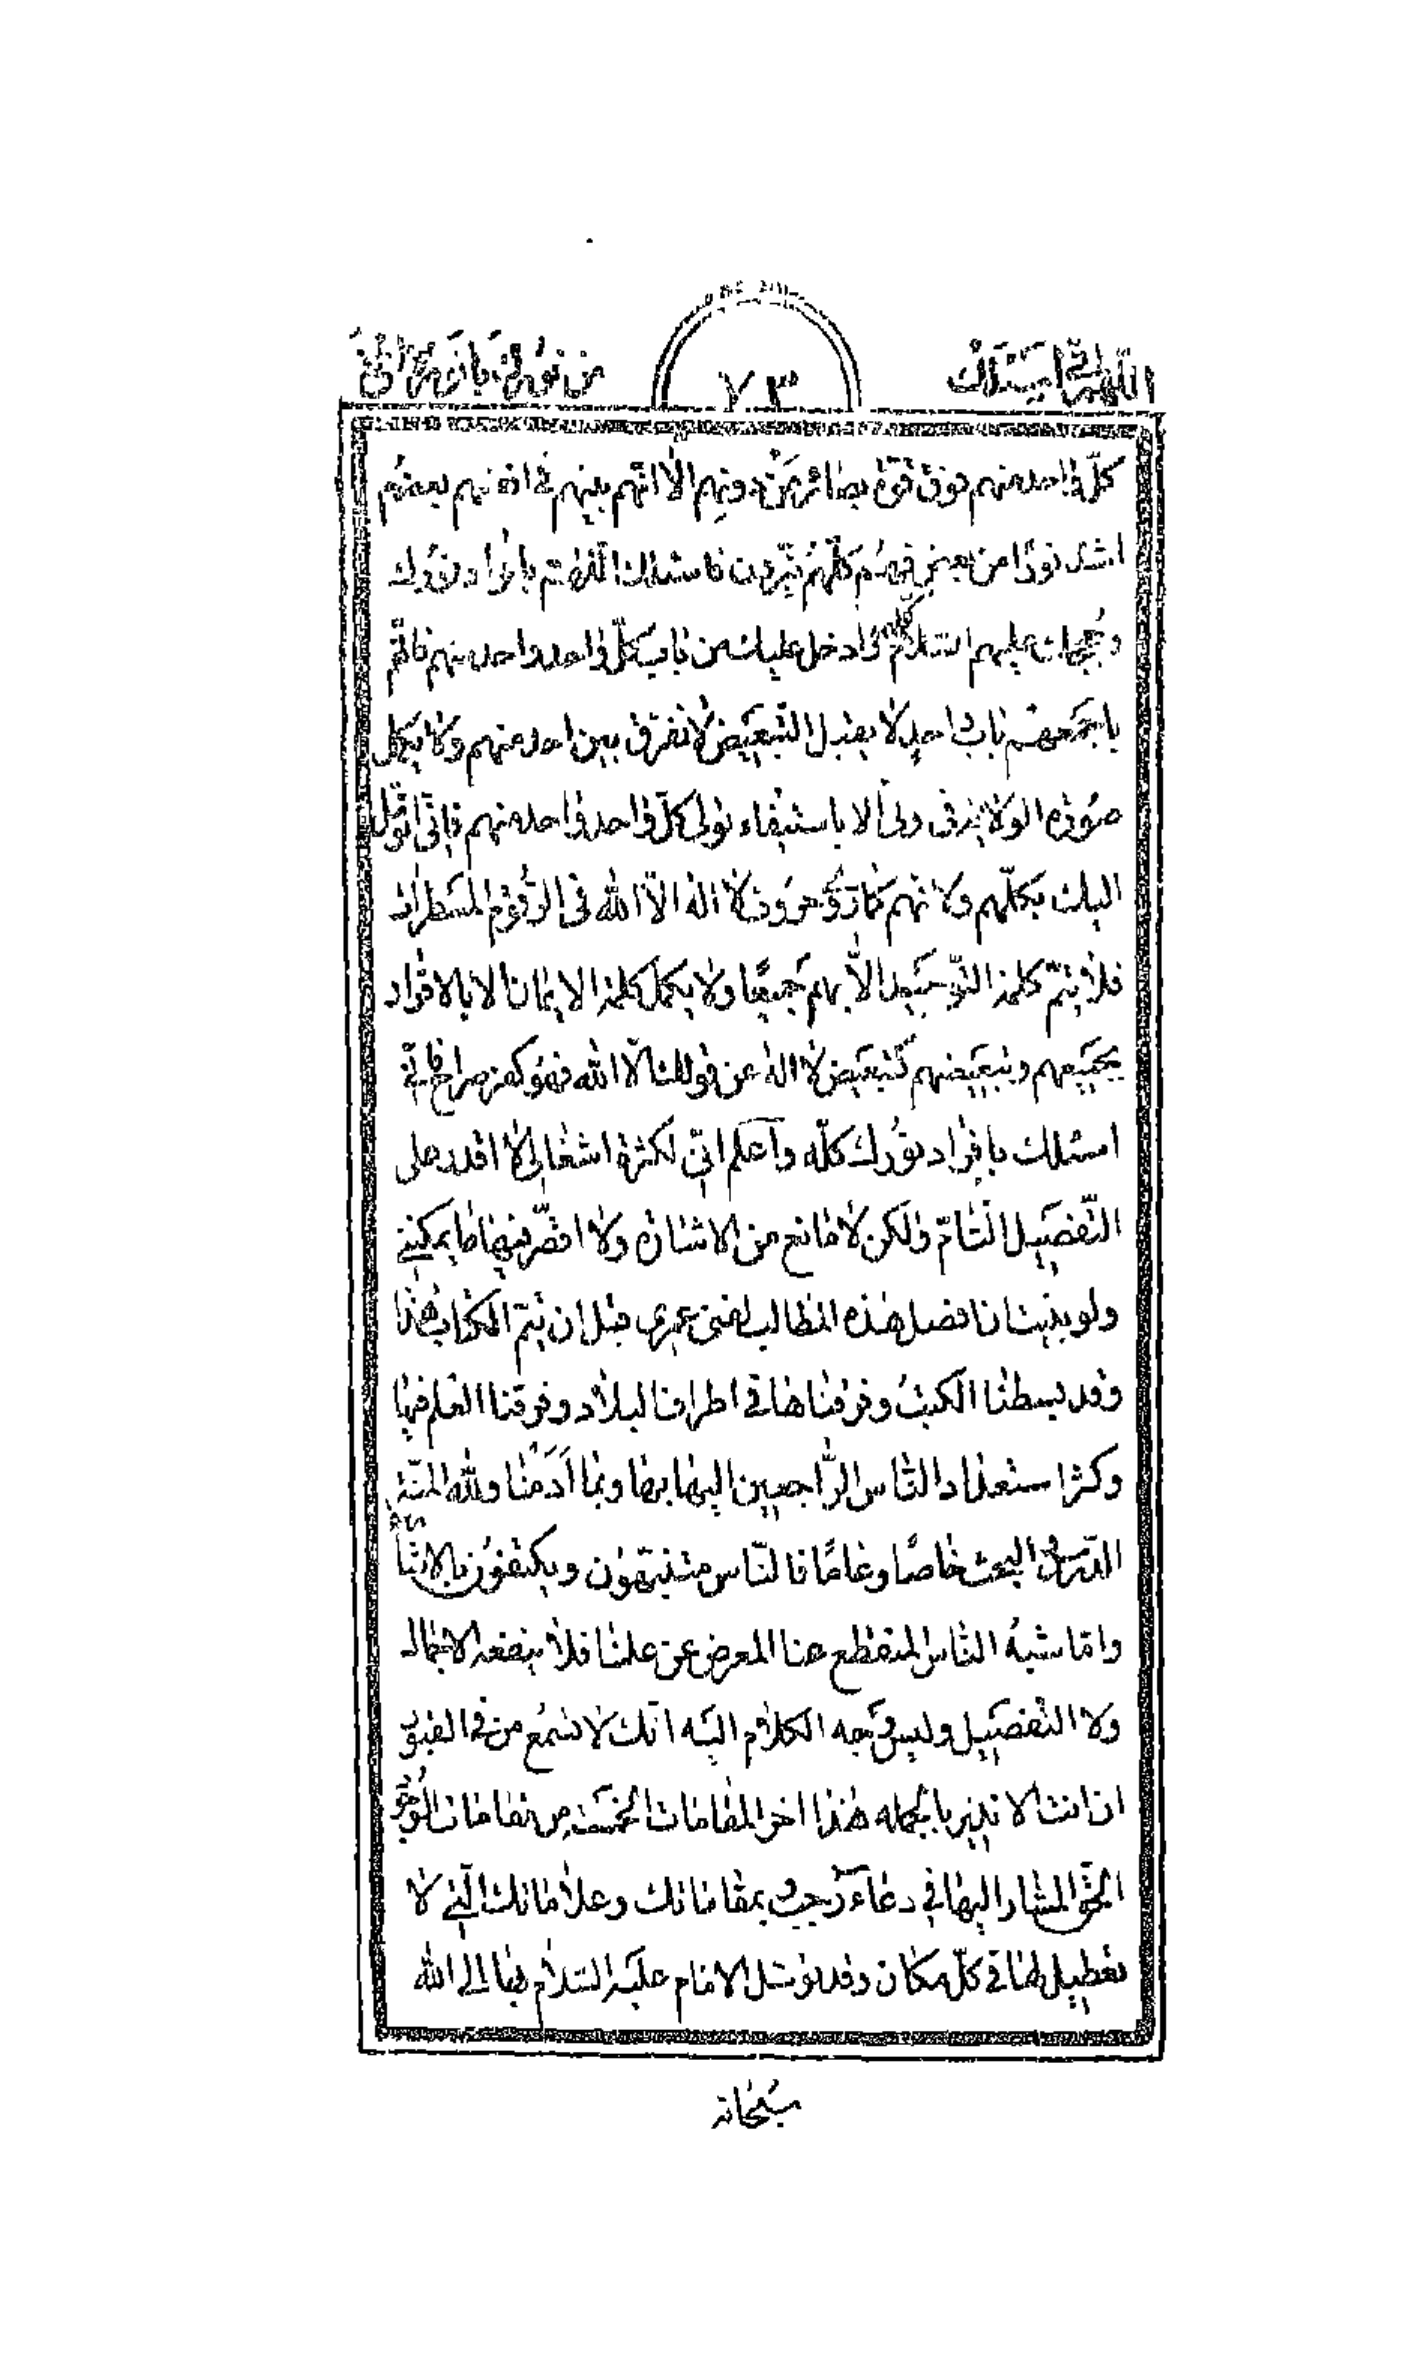 اللهم انى اسئلك
٧٣
من نورك بانوره وكل
كلّ واحد منهم فوق قوة بصائر من دونهم الا انهم بينهم في انفسهم بعضهم
اشد نورًا من بعض فهم كلّهم نيّرون فاسئلك اللهم بانوار نورك
وحججك عليهم السّلام كلهم وادخل عليك من باب كلّ واحد واحد منهم فانّهم
باجمعهم باب واحد لا يقبل التبعيض لا نفرق بين احد منهم ولا يكمل
صورة الولاية في ولي الا باستيفاء تولى كلّ واحد واحد منهم فانّي اتوسّل
اليك بكلّهم ولانهم كما ترى حروف لا اله الّا الله في الرقوم المسطرات
فلا يتم كلمة التّوحيد الّا بهم جميعًا ولا يكمل كلمة الايمان الا بالاقرار
بجميعهم وتبعيضهم كتبعيض لا اله عن قولك الّا الله فهو كفر صراح فانّي
اسئلك بانوار نورك كلّه واعلم انّي لكثرة اشغالي لا اقدر على
التّفصيل التّامّ ولكن لا مانع من الاشارة ولا اقصّر فيها ما يمكنني
ولو بنيت ان افصل هذه المطالب لفنى عمري قبل ان يتم الكتاب هذا
وقد بسطنا الكتب وفرقناها في اطراف البلاد وفرقنا العلم فيها
وكثر استعداد النّاس الرّاجعين اليها بها وبما ادمنا ولله المنّة
الدّرس والبحث خاصًا وعامًا فالنّاس متنبهون ويكتفون بالاشارة
وامّا شبه النّاس المنقطع عنا المعرض عن علمنا فلا ينفعه الاجمال
ولا التّفصيل وليس وجه الكلام اليه انك لا تسمع من في القبور
ان انت الا نذير بالجملة هذا اخر المقامات الخمسة من مقامات الوجود
الحق المشار اليها في دعاء رجب وبمقاماتك وعلاماتك الّتي لا
تعطيل لها في كلّ مكان وقد توسّل الامام عليه السّلام بها الى الله
سبحانه